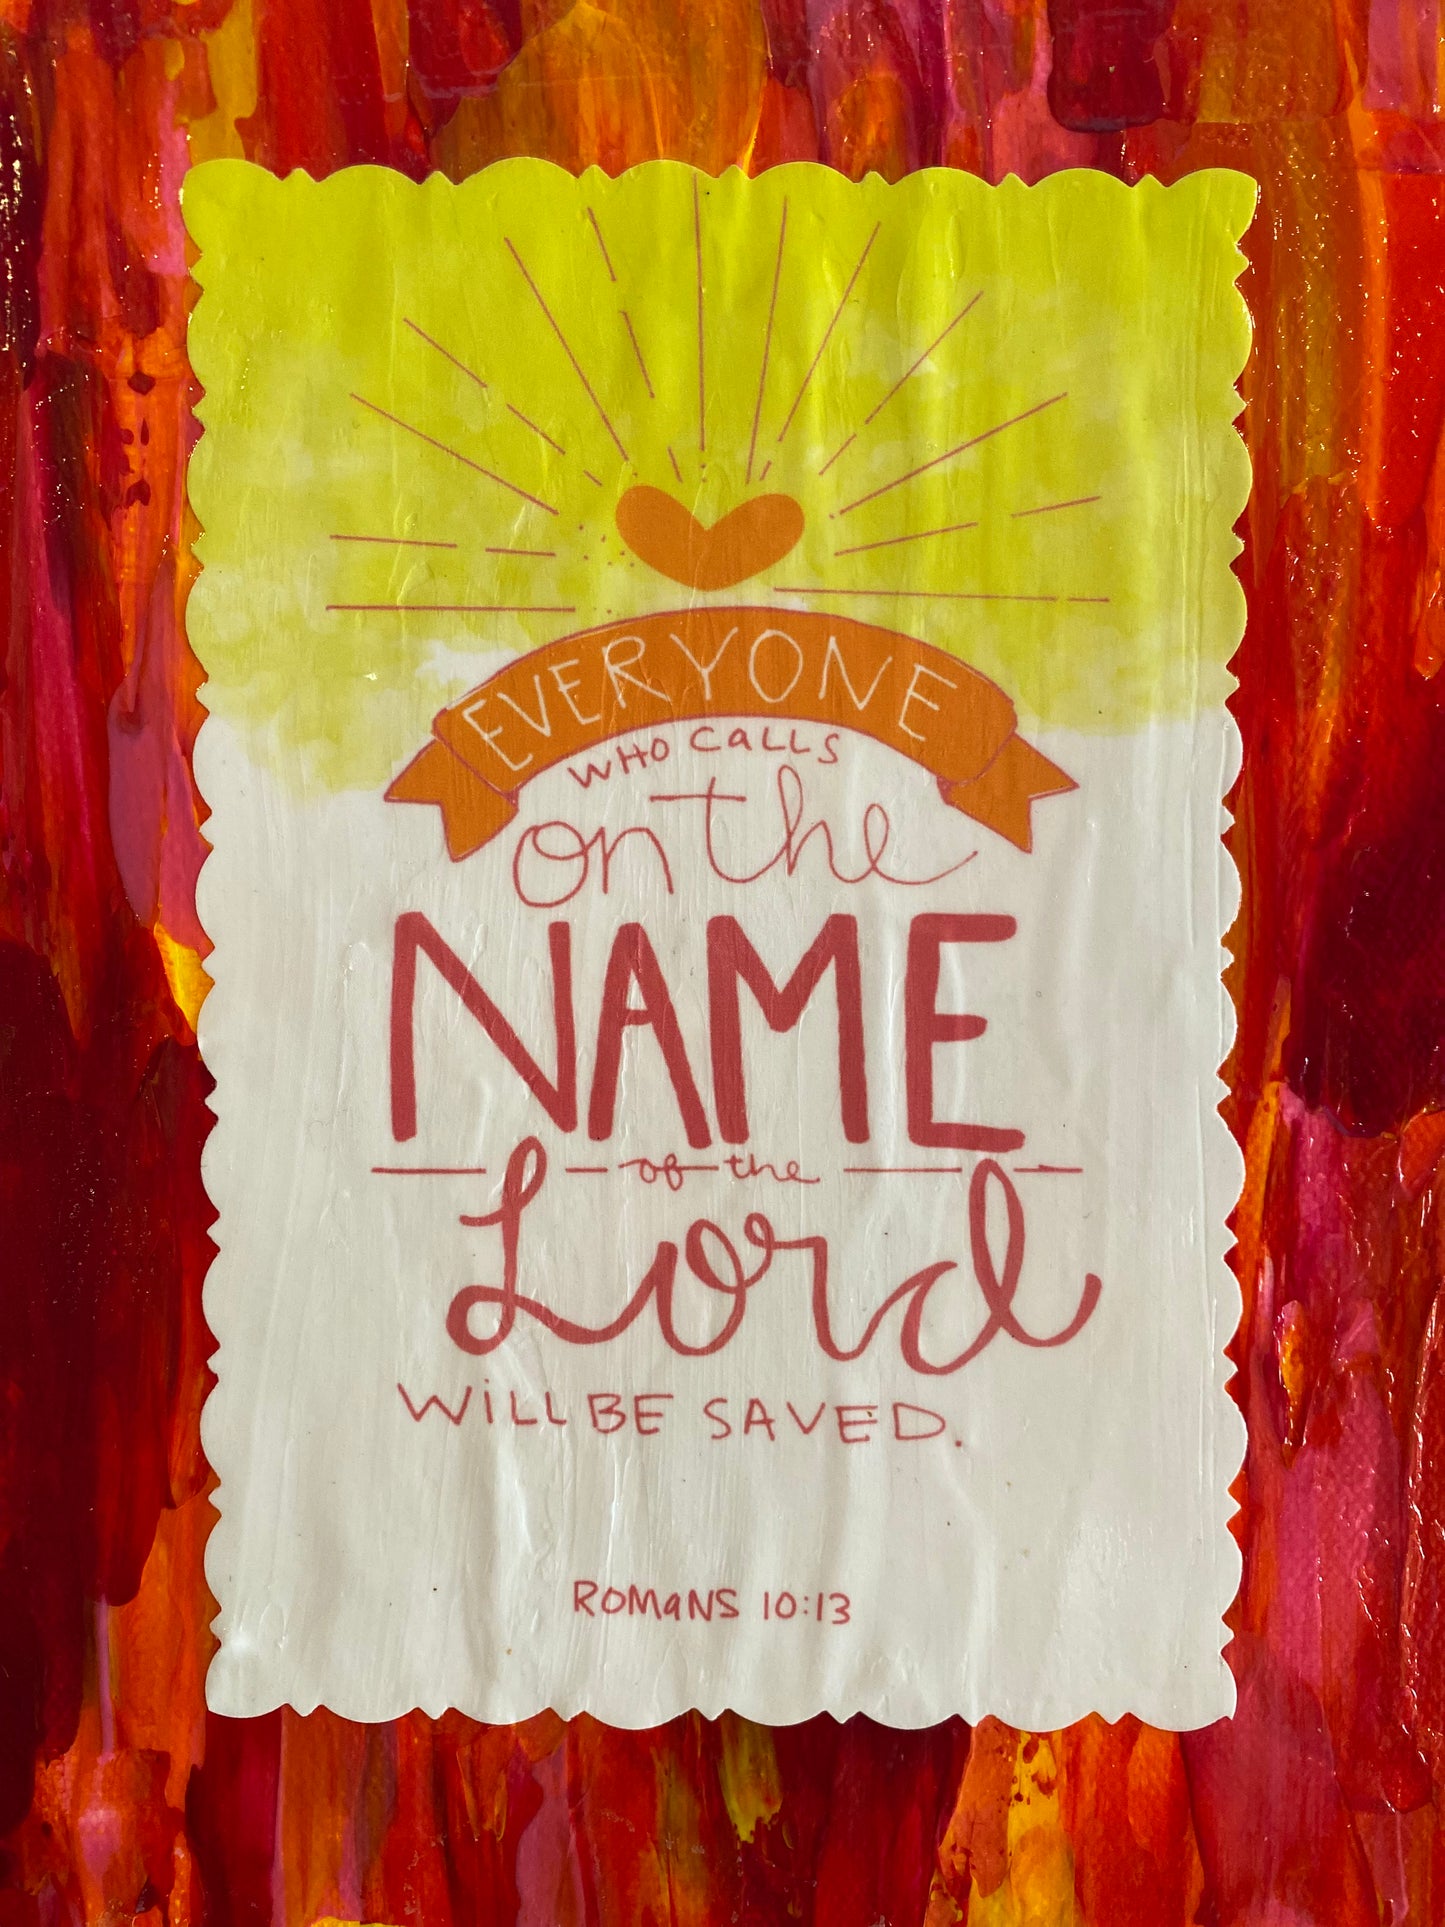 EVERYONE
WHO CaLLS
on the
NAME
of the
Lord
WiLL BE SAVED.
ROMaNS 10:13